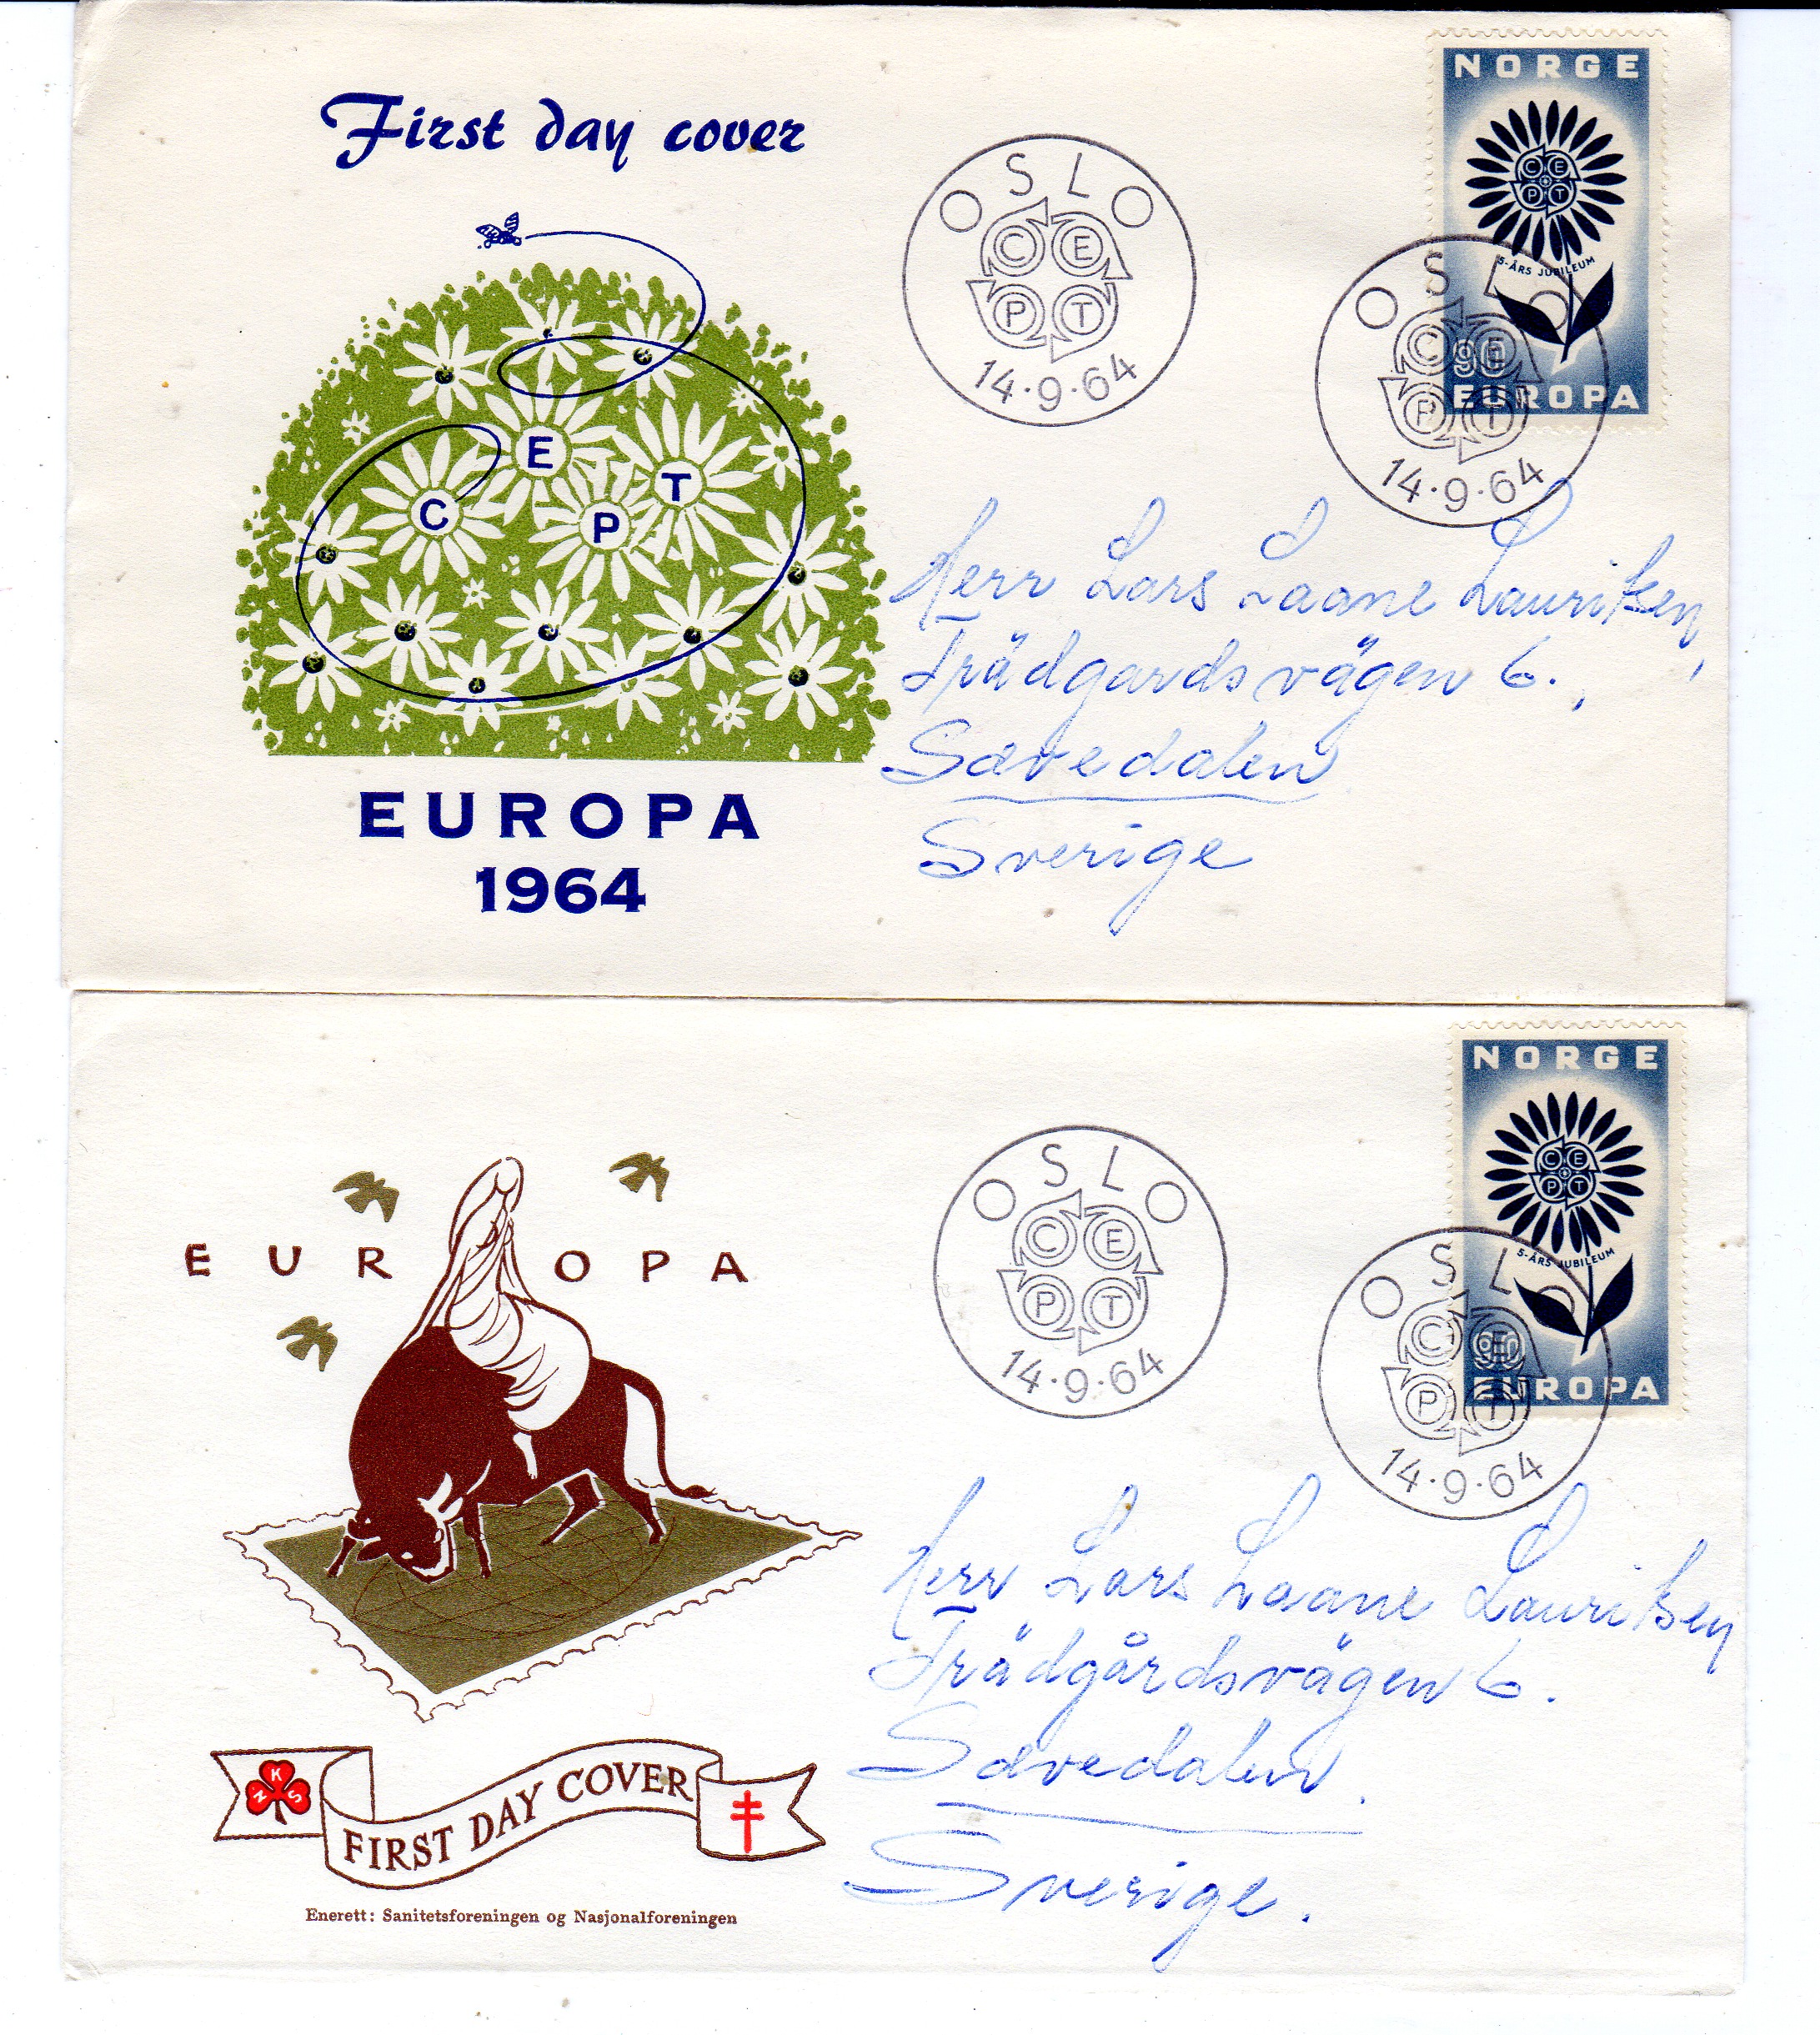 First day cover
C E P T
EUROPA
1964
OSLO
C E
P T
14·9·64
NORGE
C E
P T
5-ÅRS JUBILEUM
90
EUROPA
OSLO
C E
P T
14·9·64
Herr Lars Laane Lauritsen,
Trädgardsvägen 6.,
Sævedalen
Sverige
EUROPA
N K S
FIRST DAY COVER
Enerett: Sanitetsforeningen og Nasjonalforeningen
OSLO
C E
P T
14·9·64
NORGE
C E
P T
5-ÅRS JUBILEUM
90
EUROPA
OSLO
C E
P T
14·9·64
Herr Lars Laane Lauritsen
Trädgårdsvägen 6.
Sævedalen.
Sverige.